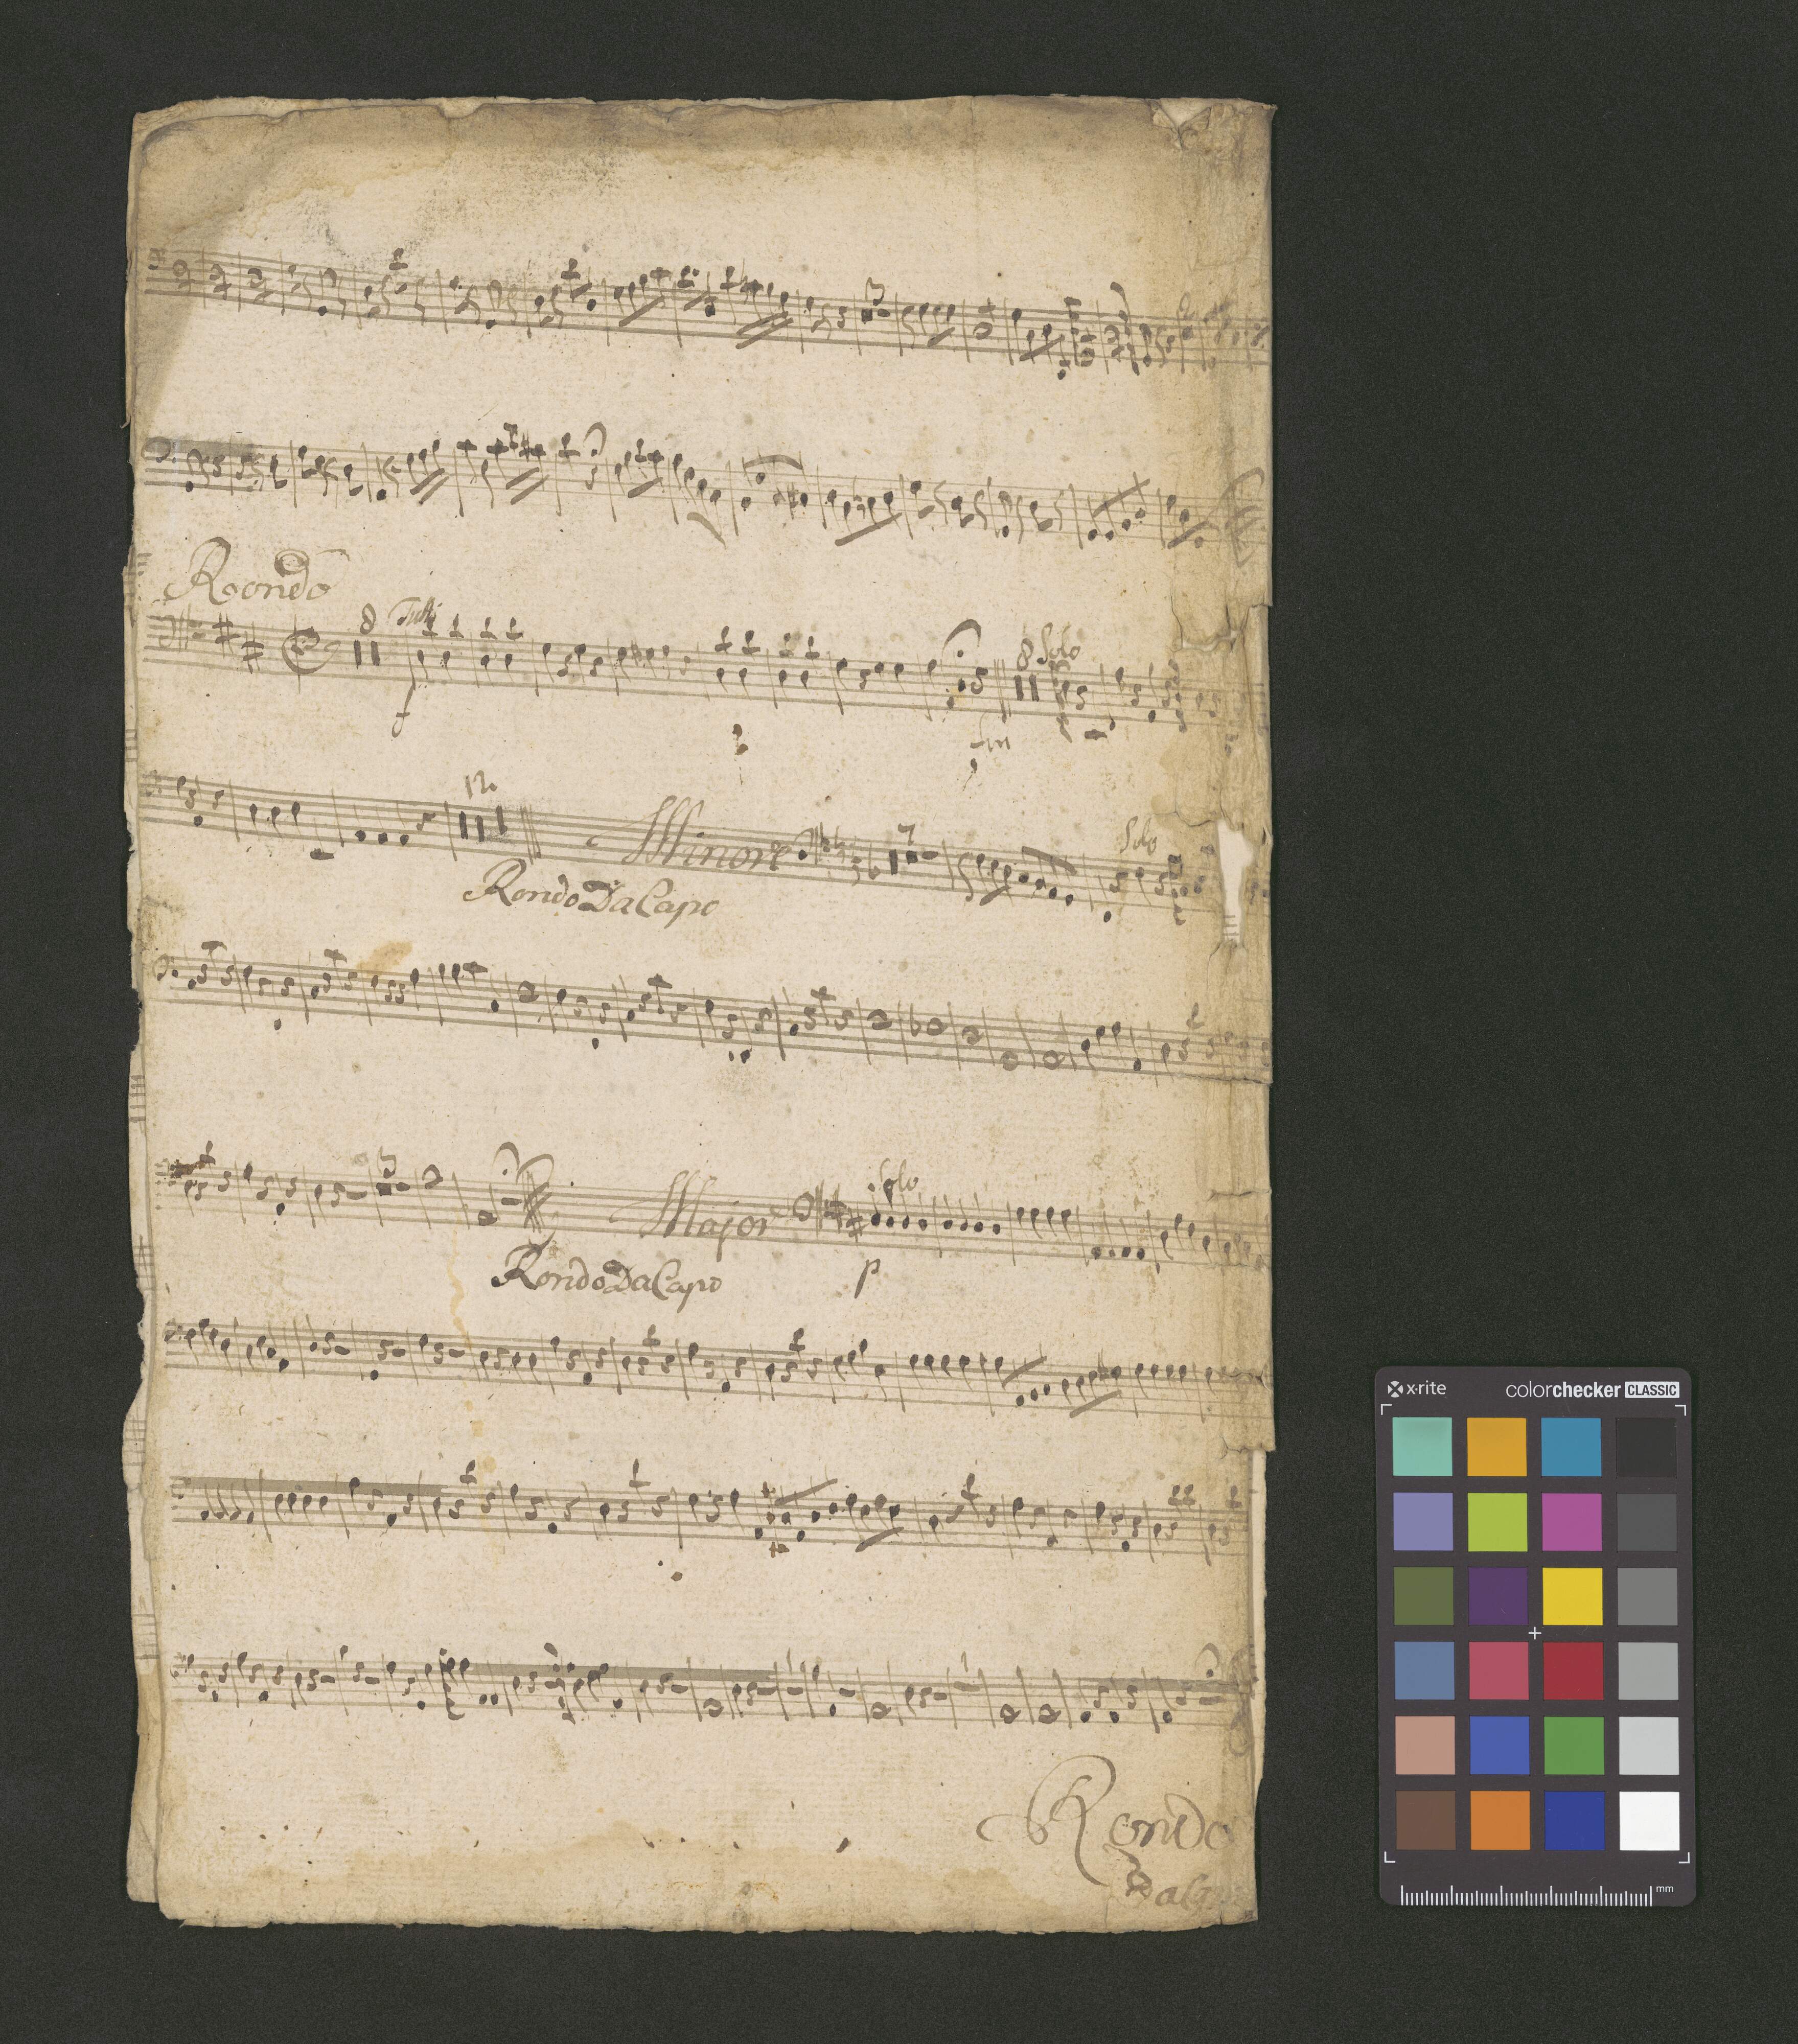 Rondo
8 Tutti 8 Solo
f fin
12 Minore 7 Solo
Rondo Da Capo
3 Major Solo
Rondo Da Capo p
x-rite colorchecker CLASSIC
mm
Rondo